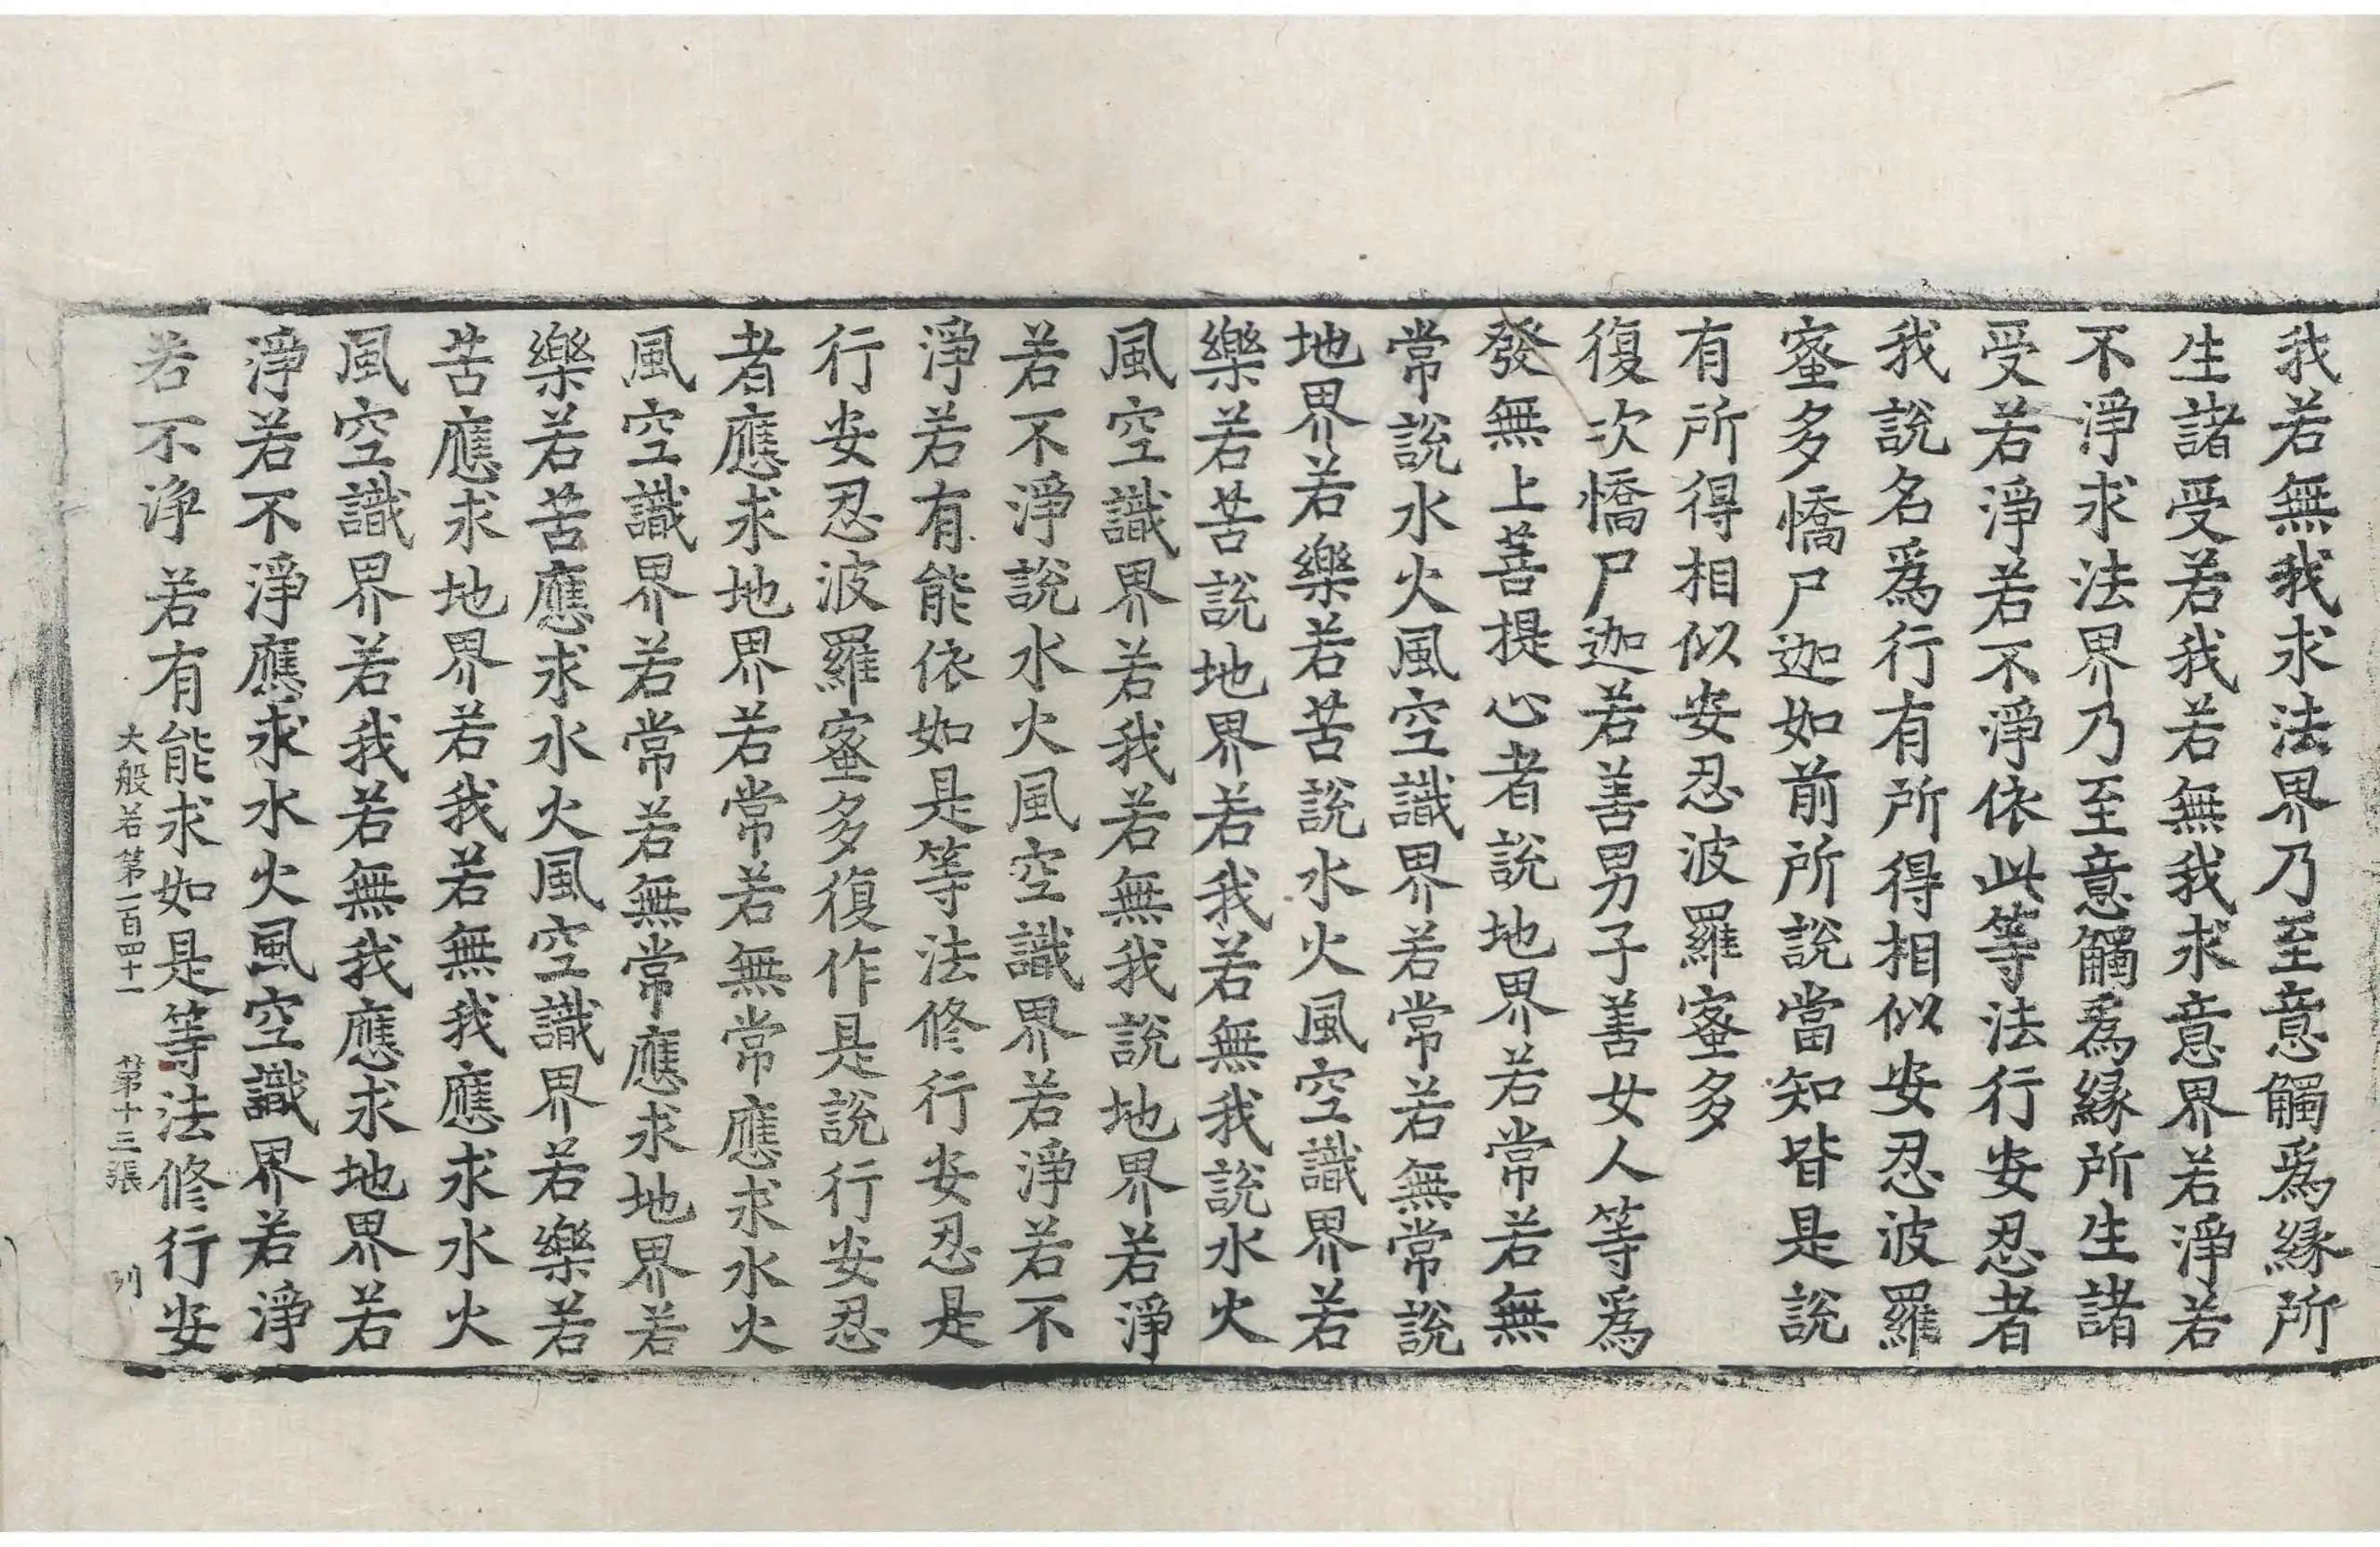 我若無我求法界乃至意觸爲縁所
生諸受若我若無我求意界若淨若
不淨求法界乃至意觸爲縁所生諸
受若淨若不淨依此等法行安忍者
我說名爲行有所得相似安忍波羅
蜜多憍尸迦如前所說當知皆是說
有所得相似安忍波羅蜜多
復次憍尸迦若善男子善女人等爲
發無上菩提心者說地界若常若無
常說水火風空識界若常若無常說
地界若樂若苦說水火風空識界若
樂若苦說地界若我若無我說水火
風空識界若我若無我說地界若淨
若不淨說水火風空識界若淨若不
淨若有能依如是等法修行安忍是
行安忍波羅蜜多復作是說行安忍
者應求地界若常若無常應求水火
風空識界若常若無常應求地界若
樂若苦應求水火風空識界若樂若
苦應求地界若我若無我應求水火
風空識界若我若無我應求地界若
淨若不淨應求水火風空識界若淨
若不淨若有能求如是等法修行安
大般若第一百四十一 第十三張 列